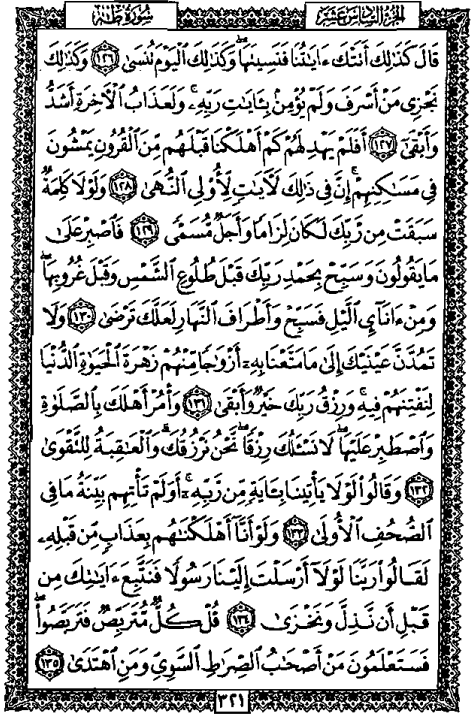 سُورَةُ طه الجزء السادس عشر
قَالَ كَذَٰلِكَ أَتَتْكَ ءَايَٰتُنَا فَنَسِيتَهَا ۖ وَكَذَٰلِكَ ٱلْيَوْمَ تُنسَىٰ ١٢٦ وَكَذَٰلِكَ
نَجْزِى مَنْ أَسْرَفَ وَلَمْ يُؤْمِنۢ بِـَٔايَٰتِ رَبِّهِۦ ۚ وَلَعَذَابُ ٱلْأَخِرَةِ أَشَدُّ
وَأَبْقَىٰٓ ١٢٧ أَفَلَمْ يَهْدِ لَهُمْ كَمْ أَهْلَكْنَا قَبْلَهُم مِّنَ ٱلْقُرُونِ يَمْشُونَ
فِى مَسَٰكِنِهِمْ ۗ إِنَّ فِى ذَٰلِكَ لَأَيَٰتٍ لِّأُو۟لِى ٱلنُّهَىٰ ١٢٨ وَلَوْلَا كَلِمَةٌ
سَبَقَتْ مِن رَّبِّكَ لَكَانَ لِزَامًا وَأَجَلٌ مُّسَمًّى ١٢٩ فَٱصْبِرْ عَلَىٰ
مَا يَقُولُونَ وَسَبِّحْ بِحَمْدِ رَبِّكَ قَبْلَ طُلُوعِ ٱلشَّمْسِ وَقَبْلَ غُرُوبِهَا ۖ
وَمِنْ ءَانَآئِ ٱلَّيْلِ فَسَبِّحْ وَأَطْرَافَ ٱلنَّهَارِ لَعَلَّكَ تَرْضَىٰ ١٣٠ وَلَا
تَمُدَّنَّ عَيْنَيْكَ إِلَىٰ مَا مَتَّعْنَا بِهِۦٓ أَزْوَٰجًا مِّنْهُمْ زَهْرَةَ ٱلْحَيَوٰةِ ٱلدُّنْيَا
لِنَفْتِنَهُمْ فِيهِ ۚ وَرِزْقُ رَبِّكَ خَيْرٌ وَأَبْقَىٰ ١٣١ وَأْمُرْ أَهْلَكَ بِٱلصَّلَوٰةِ
وَٱصْطَبِرْ عَلَيْهَا ۖ لَا نَسْـَٔلُكَ رِزْقًا ۖ نَّحْنُ نَرْزُقُكَ ۗ وَٱلْعَٰقِبَةُ لِلتَّقْوَىٰ
١٣٢ وَقَالُوا۟ لَوْلَا يَأْتِينَا بِـَٔايَةٍ مِّن رَّبِّهِۦٓ ۚ أَوَلَمْ تَأْتِهِم بَيِّنَةُ مَا فِى
ٱلصُّحُفِ ٱلْأُولَىٰ ١٣٣ وَلَوْ أَنَّآ أَهْلَكْنَٰهُم بِعَذَابٍ مِّن قَبْلِهِۦ
لَقَالُوا۟ رَبَّنَا لَوْلَآ أَرْسَلْتَ إِلَيْنَا رَسُولًا فَنَتَّبِعَ ءَايَٰتِكَ مِن
قَبْلِ أَن نَّذِلَّ وَنَخْزَىٰ ١٣٤ قُلْ كُلٌّ مُّتَرَبِّصٌ فَتَرَبَّصُوا۟ ۖ
فَسَتَعْلَمُونَ مَنْ أَصْحَٰبُ ٱلصِّرَٰطِ ٱلسَّوِىِّ وَمَنِ ٱهْتَدَىٰ ١٣٥
٣٢١